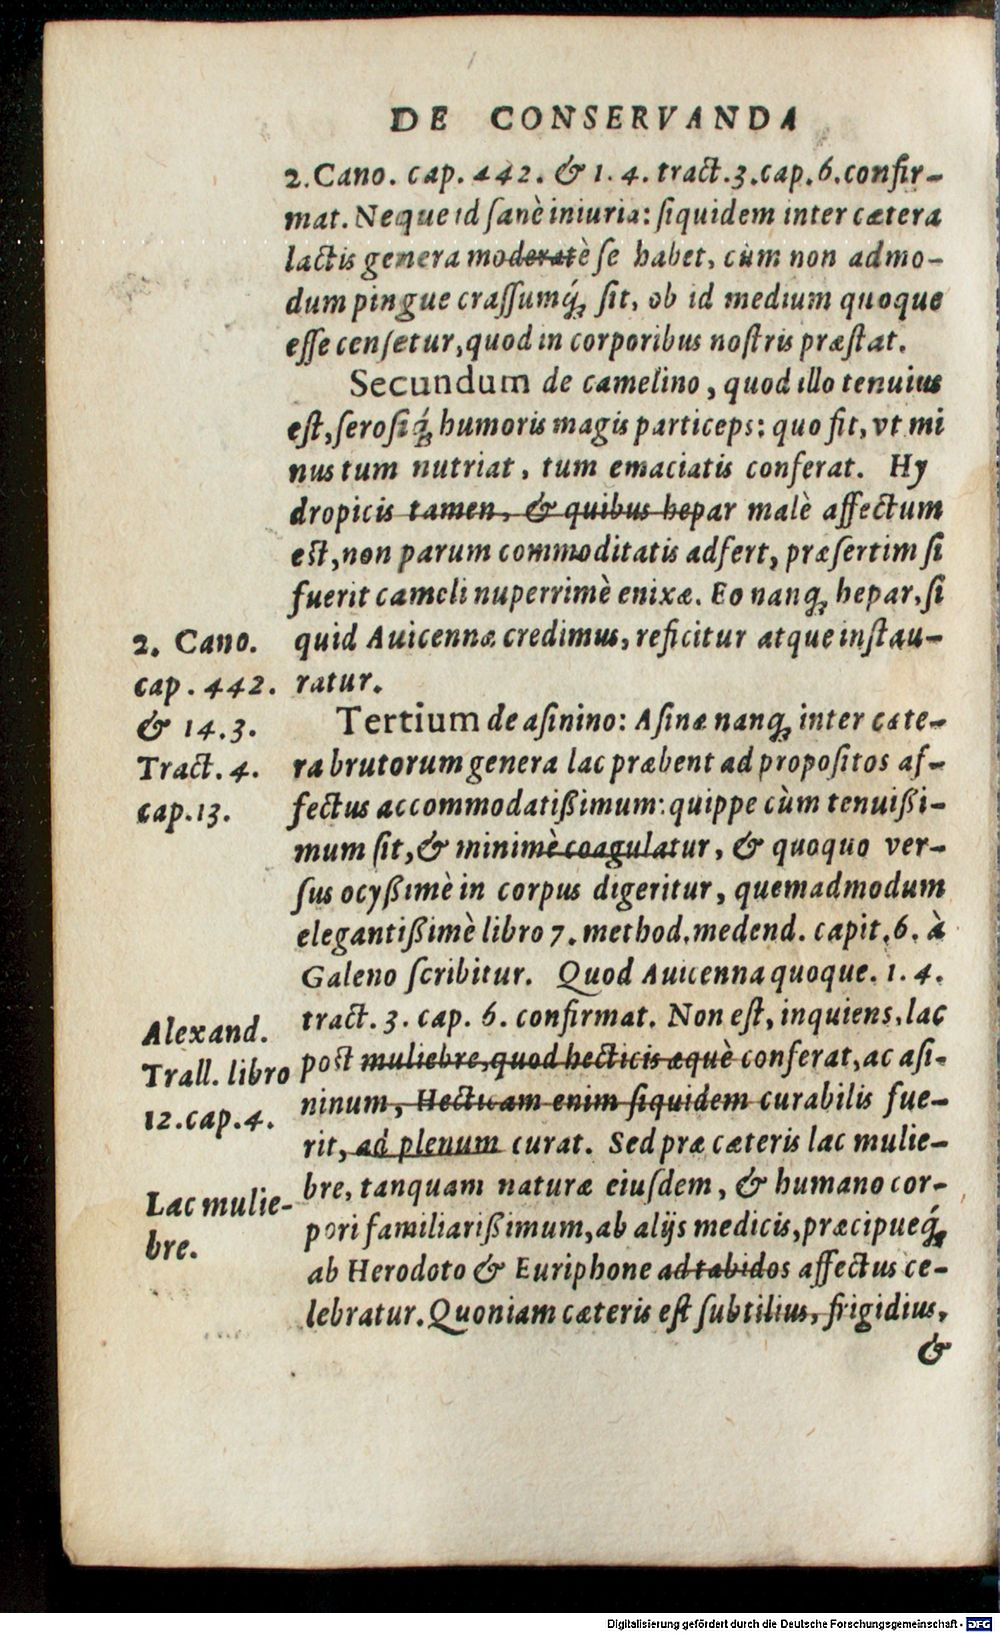 DE CONSERVANDA
2. Cano. cap. 442. & 1. 4. tract. 3. cap. 6. confir-
mat. Neque id ſanè iniuria: ſiquidem inter cætera
lactis genera moderatè ſe habet, cùm non admo-
dum pingue craſſumq́; ſit, ob id medium quoque
eſſe cenſetur, quod in corporibus noſtris præſtat.
Secundum de camelino, quod illo tenuius
eſt, ſeroſiq́; humoris magis particeps: quo fit, vt mi
nus tum nutriat, tum emaciatis conferat. Hy
dropicis tamen, & quibus hepar malè affectum
eſt, non parum commoditatis adfert, præſertim ſi
fuerit cameli nuperrimè enixæ. Eo nanq; hepar, ſi
quid Auicennæ credimus, reficitur atque inſtau-
ratur.
2. Cano.
cap. 442.
& 14. 3.
Tract. 4.
cap. 13.
Tertium de aſinino: Aſinæ nanq; inter cæte-
ra brutorum genera lac præbent ad propoſitos af-
fectus accommodatißimum: quippe cùm tenuißi-
mum ſit, & minimè coagulatur, & quoquo ver-
ſus ocyßimè in corpus digeritur, quemadmodum
elegantißimè libro 7. method. medend. capit. 6. à
Galeno ſcribitur. Quod Auicenna quoque. 1. 4.
tract. 3. cap. 6. confirmat. Non eſt, inquiens, lac
post muliebre, quod hecticis æquè conferat, ac aſi-
ninum, Hecticam enim ſiquidem curabilis fue-
rit, ad plenum curat. Sed præ cæteris lac mulie-
bre, tanquam naturæ eiuſdem, & humano cor-
pori familiarißimum, ab alijs medicis, præcipueq́;
ab Herodoto & Euriphone ad tabidos affectus ce-
lebratur. Quoniam cæteris eſt ſubtilius, frigidius,
Alexand.
Trall. libro
12. cap. 4.
Lac mulie-
bre.
&
Digitalisierung gefördert durch die Deutsche Forschungsgemeinschaft - DFG